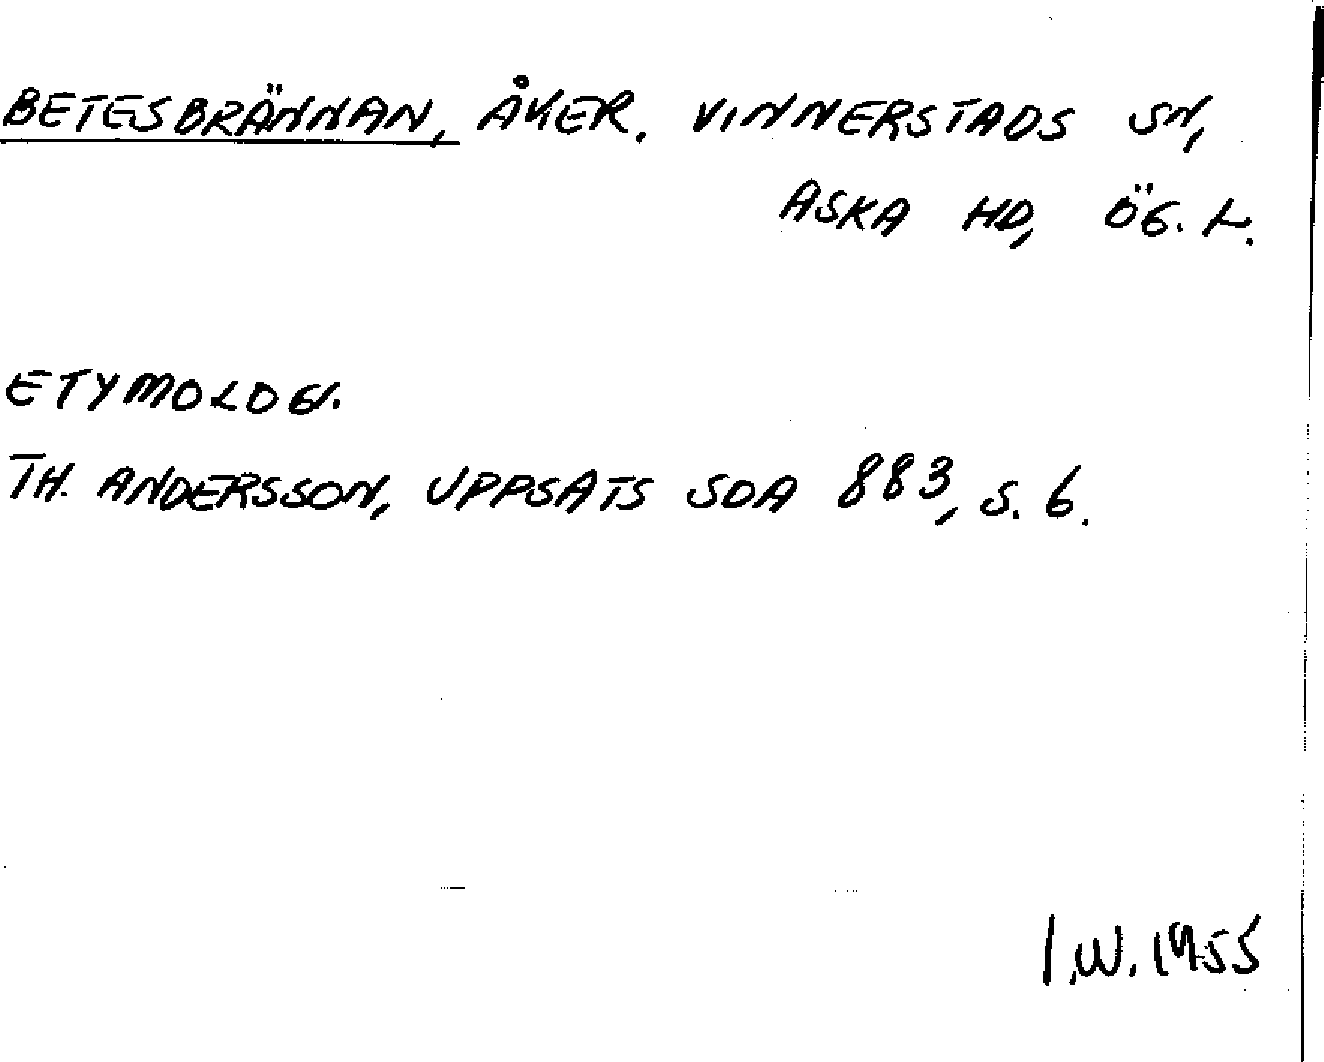 BETESBRÄNNAN, ÅKER. VINNERSTADS SN,
ASKA HD, ÖG. L.
ETYMOLOGI.
TH. ANDERSSON, UPPSATS SOA 883, S. 6.
I.W. 1955